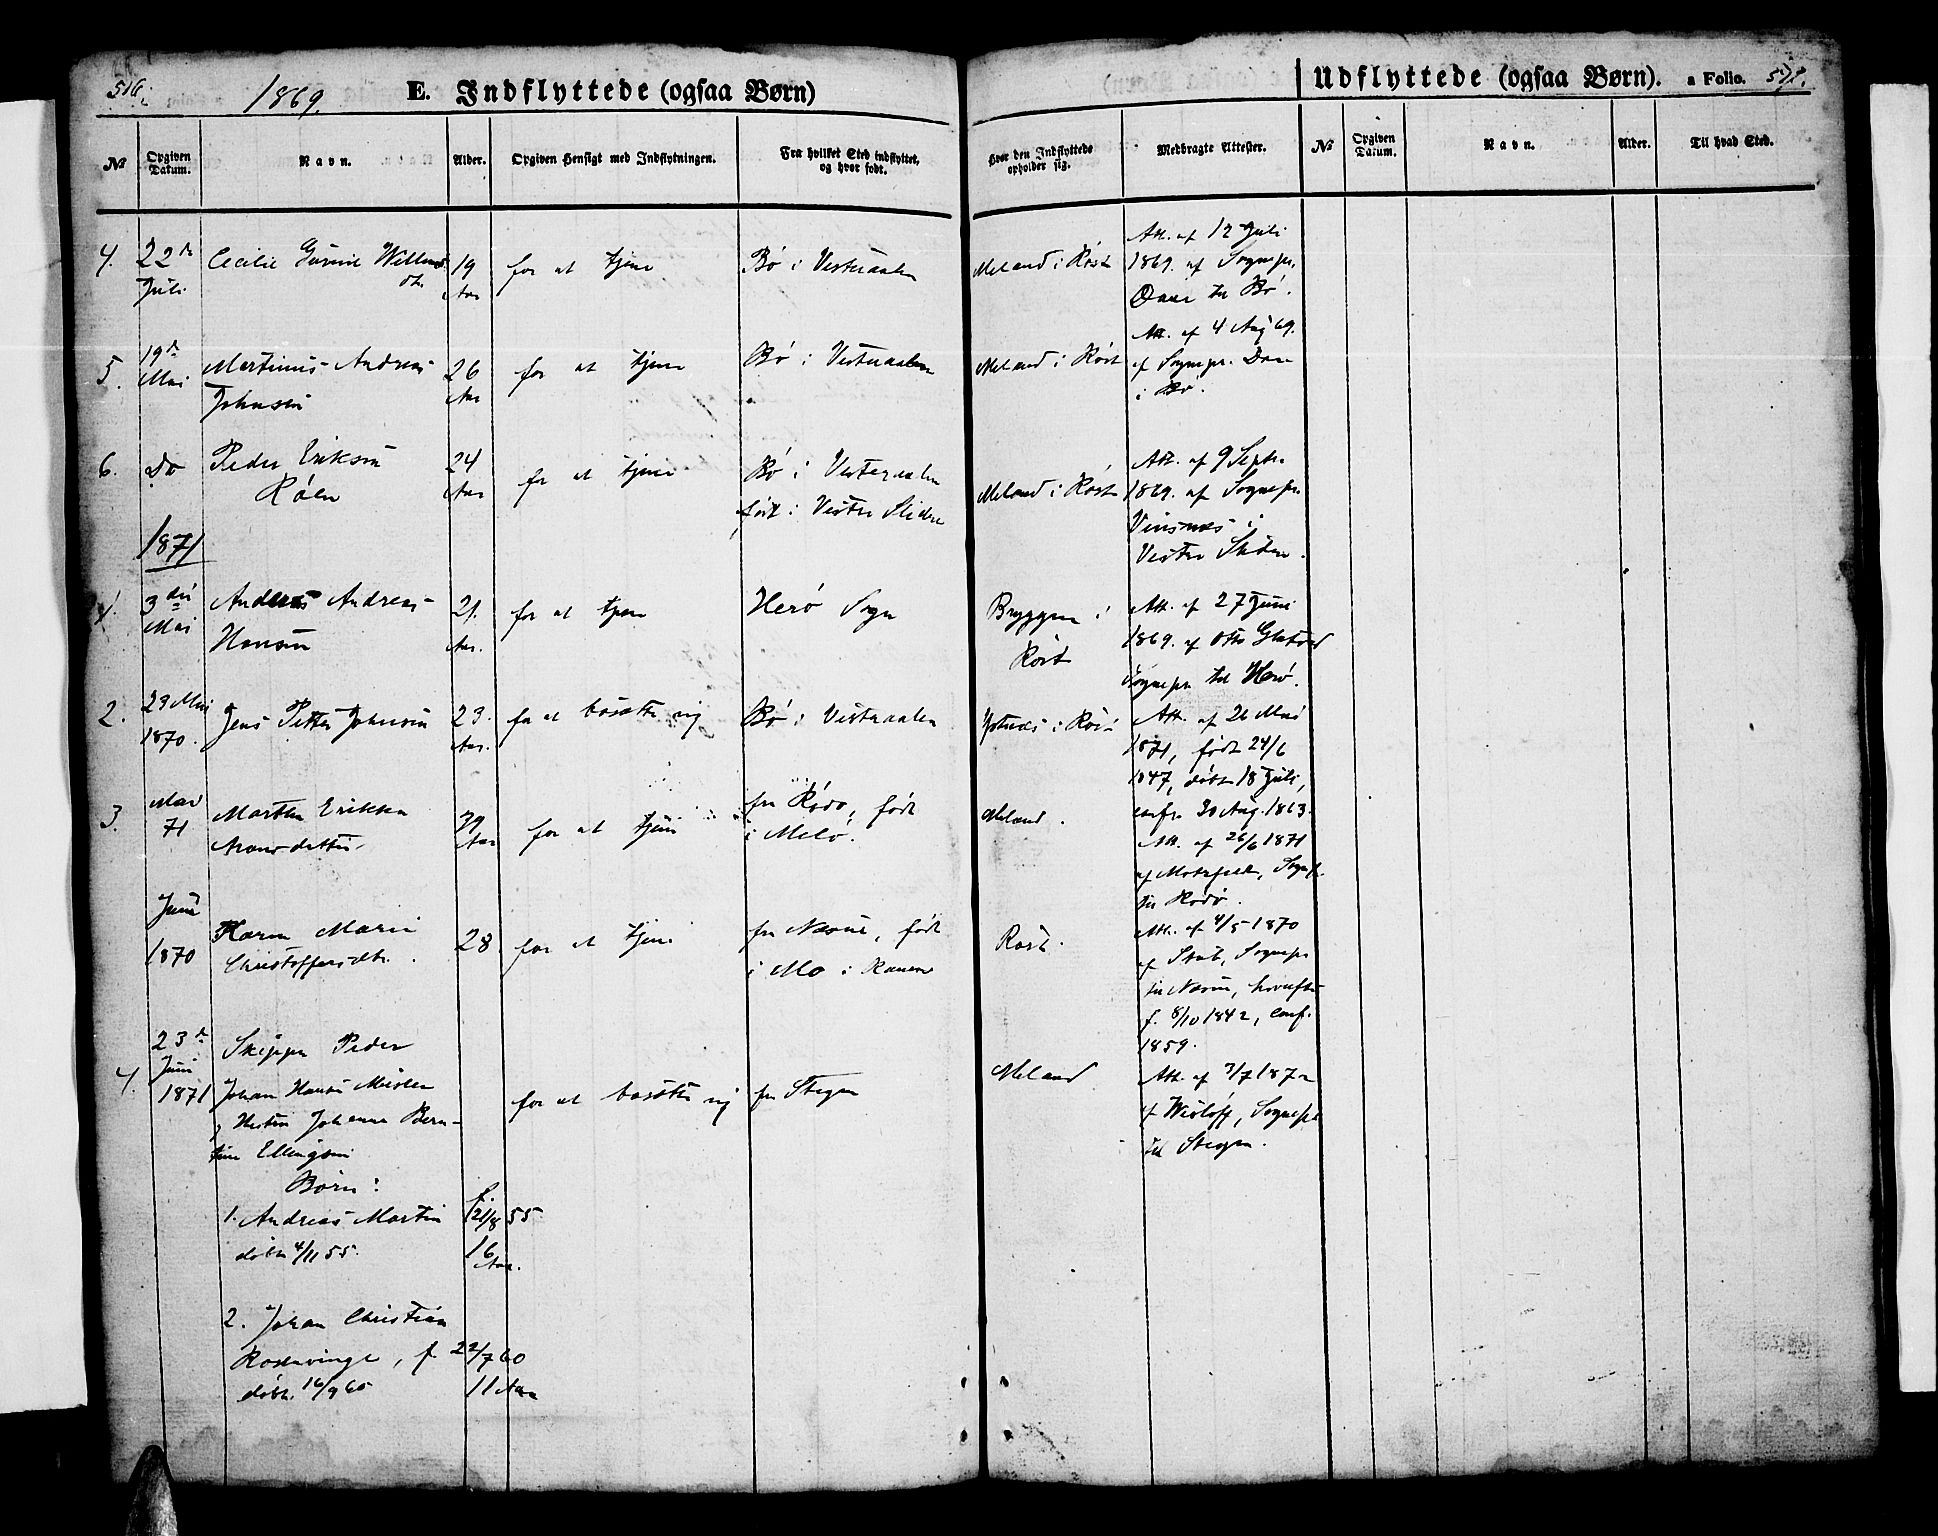 516.
1869.
E. Indflyttede (ogsaa Børn)
Udflyttede (ogsaa Børn). a Folio.
№
Opgiven Datum.
Navn.
Alder.
Opgiven Hensigt med Indflytningen.
Fra hvilket Sted indflyttet, og hvor født.
Hvor den Indflyttede opholder sig.
Medbragte Attester.
№
Opgiven Datum.
Navn.
Alder.
Til hvad Sted.
4. 22de Juli
Cecilie
19 Aar
for at tjene
Bø i Vesteraalen
Meland i Røst
Att. af 12 Juli
1869. af Sognepr.
Daae til Bø.
5. 19de Mai
Martinus Andreas
Johnsen
26 Aar
for at tjene
Bø i Vesteraalen
Meland i Røst
Att. af 4 Aug 69.
af Sognepr. Daae
i Bø.
6. Do
Peder Eriksen
Røen
24 Aar
for at tjene
Bø i Vesteraalen
født i Vester Slidre
Meland i Røst
Att. af 9 Septr.
1869. af Sognepr.
i
Vester Slidre.
1871
1. 3die Mai
Andreas Andreas
Hansen
21. Aar.
for at tjene
Herø Sogn
Bryggen i
Røst
Att. af 27 Juni
1869. af Otto
Sognepr til Herø.
2. 29 Mai
1870.
Jens Petter Johnsen
23. Aar.
for at bosætte sig
Bø i Vesteraalen
i Røst
Att. af 26 Mai
1871, født 24/6
1847, døbt 18 Juli,
confr. 30 Aug. 1863.
3. Mai
71
Marthe Erikka
Aronsdatter
29 Aar
for at tjene
fra Rødø, født
i Melø.
Meland.
Att. af 26/6 1871
af Motzfeldt, Sognepr.
til Rødø.
Juni
1870
Karen Marie
Christoffersdtr.
28
for at tjene
fra Næsne, født
i Mo i Ranen
Røst.
Att. af 4/5 1870
af Sognepr
til Næsne,
f. 8/10 1842, Conf.
1859.
4. 23de
Juni
1871
Skipper Peder
Johan Hansen
og Hustru Johanna Bern-
tine Ellingsen
for at bosætte sig
fra Stegen
Meland
Att. af 3/7 1872
af Wisløff, Sognepr
til Stegen.
Børn:
1. Andreas Martin
f. 21/8 55
døbt 4/11 55.
16 Aar.
2. Johan Christian
Rosenvinge, f. 22/7 60
døbt. 16/9 60
11 Aar